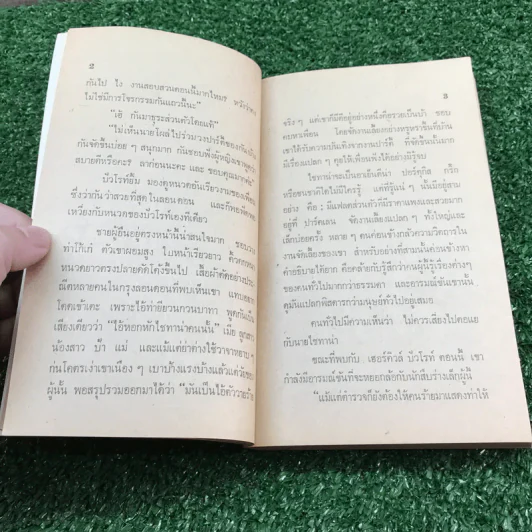 2
กันไป ไง งานสอบสวนตอนนี้มากไหมฮะ หวังว่าคง
ไม่ใช่มีการโจรกรรมกันแถวนี้นะ"
"เอ้ กันมาธุระส่วนตัวโดยแท้"
"ไม่เห็นนายโผล่ไปร่วมวงปาร์ตี้ของกัน
กันจัดขึ้นบ่อย ๆ สนุกมาก กันชอบฟังผู้หญิงเขาพูดกัน
สบายดีหรือคะ ลาก่อนนะคะ และ ขอบคุณมากค่ะ"
บัวโรท์ยิ้ม มองดูหนวดอันเรียวงามของเพื่อน
ซึ่งว่ากันว่าสวยที่สุดในลอนดอน และก็พอฟัดพอ
เหวี่ยงกับหนวกของบัวโรท์เองทีเดียว
ชายผู้ยืนอยู่ตรงหน้านี้น่าสนใจมาก ชอบวาง
ท่าโก้เก๋ ตัวเขาผอมสูง ใบหน้าเรียวยาว
หนวดยาวตรงปลายดัดโค้งขึ้นไป เสื้อผ้าตัดอย่างประ-
ณีตหลายคนในกรุงลอนดอนที่พบเห็นเขา แทบอยาก
โดดเข้าเตะ เพราะไอ้ท่ายียวนกวนบาทา พูดกันเป็น
เสียงเดียวว่า "ไอ้หอกหักไชท่าน่าคนนั้น" เมีย ลูกสาว
น้องสาว ป้า แม่ และแม้แต่ย่าต่างใช้วาจาหยาบ ๆ
ก่นโคตรเง่าเขาเนือง ๆ เบาบ้างแรงบ้างแล้วแต่วัยของ
ผู้นั้น พอสรุปรวมออกมาได้ว่า "มันเป็นไอ้ตัววายร้าย
3
จริง ๆ แต่เขาก็มีดีอยู่อย่างหนึ่งคือรวยเป็นบ้า ชอบ
คบหาเพื่อน โดยจัดงานเลี้ยงอย่างหรูหราขึ้นที่บ้าน
เขาได้รับความบันเทิงจากงานปาร์ตี้ ที่จัดขึ้นนั้นมาก
มีเรื่องแปลก ๆ คุยให้เพื่อนฟังได้อย่างมิรู้จบ
ไชท่าน่าจะเป็นอาเย็นตินัน ปอร์ทุกิส กรีก
หรือชนชาติใดไม่มีใครรู้ แต่ที่รู้แน่ ๆ นั้นมีอยู่สาม
อย่าง คือ ; มีแฟลตส่วนตัวที่มีราคาแพงและสวยมาก
อยู่ที่ ปาร์คเลน จัดงานเลี้ยงแปลก ๆ ทั้งใหญ่และ
เล็กบ่อยครั้ง หลาย ๆ คนค่อนข้างกลัวความวิตถารใน
งานจัดเลี้ยงของเขา สำหรับอย่างที่สามนั้นค่อนข้างหา
คำอธิบายได้ยาก คือคล้ายกับรู้สึกว่าคนผู้นี้รู้เรื่องต่างๆ
ของคนทั่วไปมากกว่าธรรมดา และอารมณ์ขันเขานั้น
ดูมันแปลกพิสดารกว่ามนุษย์ทั่วไปอยู่เสมอ
คนทั่วไปมีความเห็นว่า ไม่ควรเสี่ยงไปตอแย
กับนายไชท่าน่า
ขณะที่พบกับ เฮอร์คิวล์ บัวโรท์ ตอนนี้ เขา
กำลังมีอารมณ์ขันที่จะหยอกล้อกับนักสืบร่างเล็กผู้นี้
"แม้แต่ตำรวจก็ยังต้องให้คนร้ายมาแสดงท่าให้